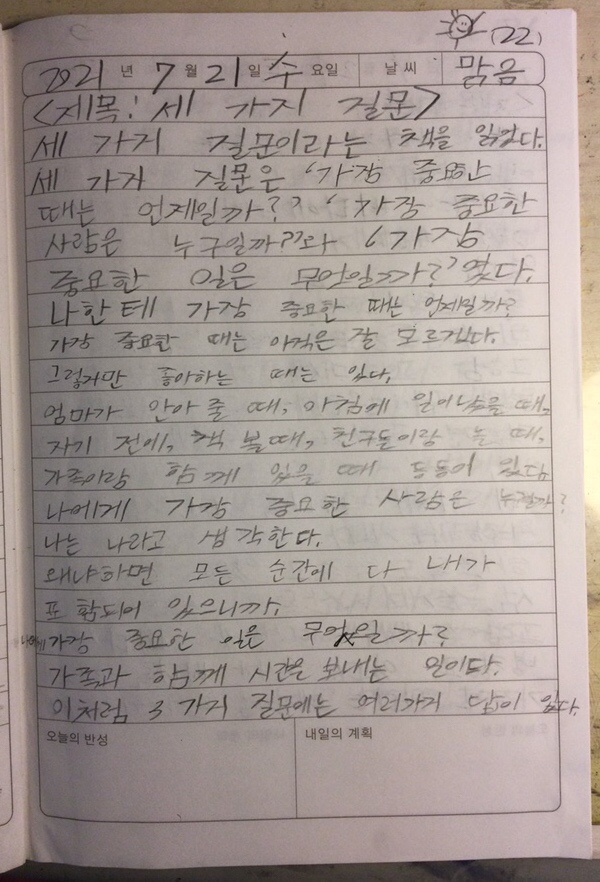 (22)
2021 년 7 월 21 일 수 요일 날 씨 맑음
<제목: 세 가지 질문>
세 가지 질문이라는 책을 읽었다.
세 가지 질문은 '가장 중요한
때는 언제일까?' '가장 중요한
사람은 누구일까?'와 '가장
중요한 일은 무엇일까?' 였다.
나한테 가장 중요한 때는 언제일까?
가장 중요한 때는 아직은 잘 모르겠다.
그렇지만 좋아하는 때는 있다.
엄마가 안아 줄 때, 아침에 일어났을 때,
자기 전에, 책 볼때, 친구들이랑 노는 때,
가족이랑 함께 있을 때 등등이 있다.
나에게 가장 중요한 사람은 누구일까?
나는 나라고 생각한다.
왜냐하면 모든 순간에 다 내가
포함되어 있으니까.
나에게 가장 중요한 일은 무엇일까?
가족과 함께 시간을 보내는 일이다.
이처럼 3 가지 질문에는 여러가지 답이 있다.
오늘의 반성 내일의 계획